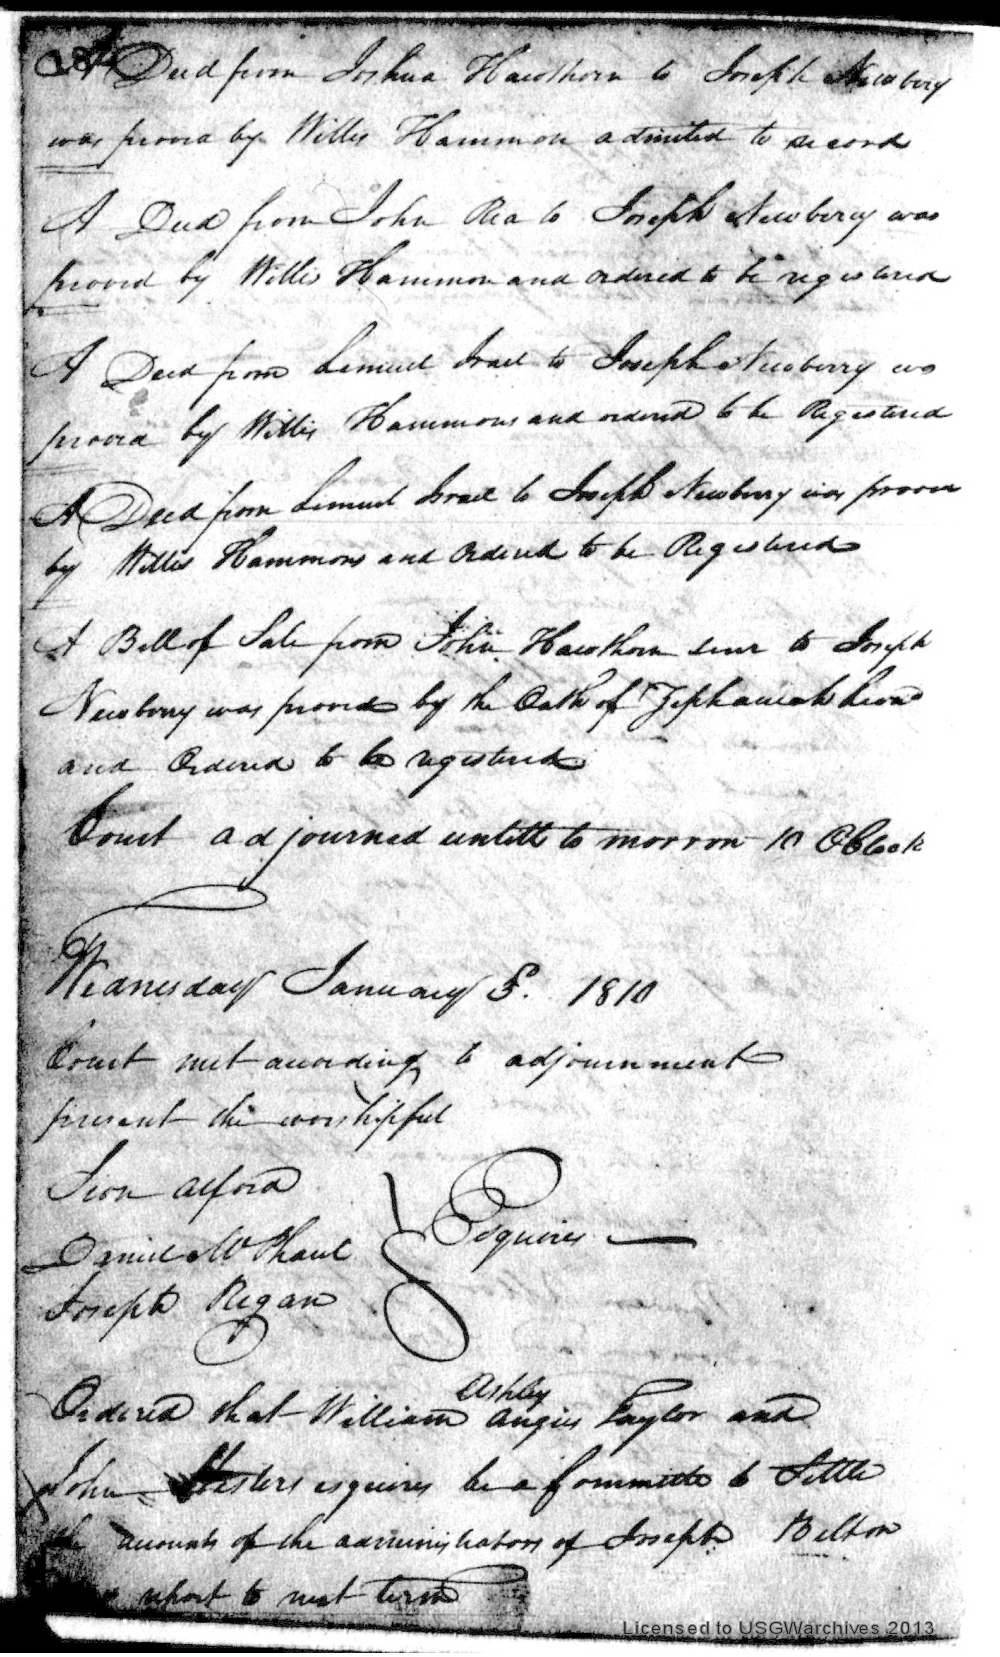 A Deed from Joshua Hawthorn to Joseph Newbery
was proved by Willis Hammon admitted to record
A Deed from John Rea to Joseph Newberry was
proved by Willis Hammon and ordered to be registered
A Deed from Lemuel Israel to Joseph Newberry was
proved by Willis Hammons and ordered to be Registered
A Deed from Lemuel Israel to Joseph Newberry was proven
by Willis Hammons and Ordered to be Registered
A Bill of Sale from John Hawthorn senr to Joseph
Newberry was proved by the Oath of Zephaniah
and Ordered to be registered
Court adjourned untill to morrow 10 OClock
Wednesday January 3. 1810
Court met according to adjournment
present the worshipful
Sion Alford
Daniel McPhaul
Joseph Regan
Esquires
Ordered that William Ashley Angus Taylor and
John Hesters esquires be a Committe to Settle
the accounts of the administrators of Joseph Belton
report to next term
Licensed to USGWarchives 2013